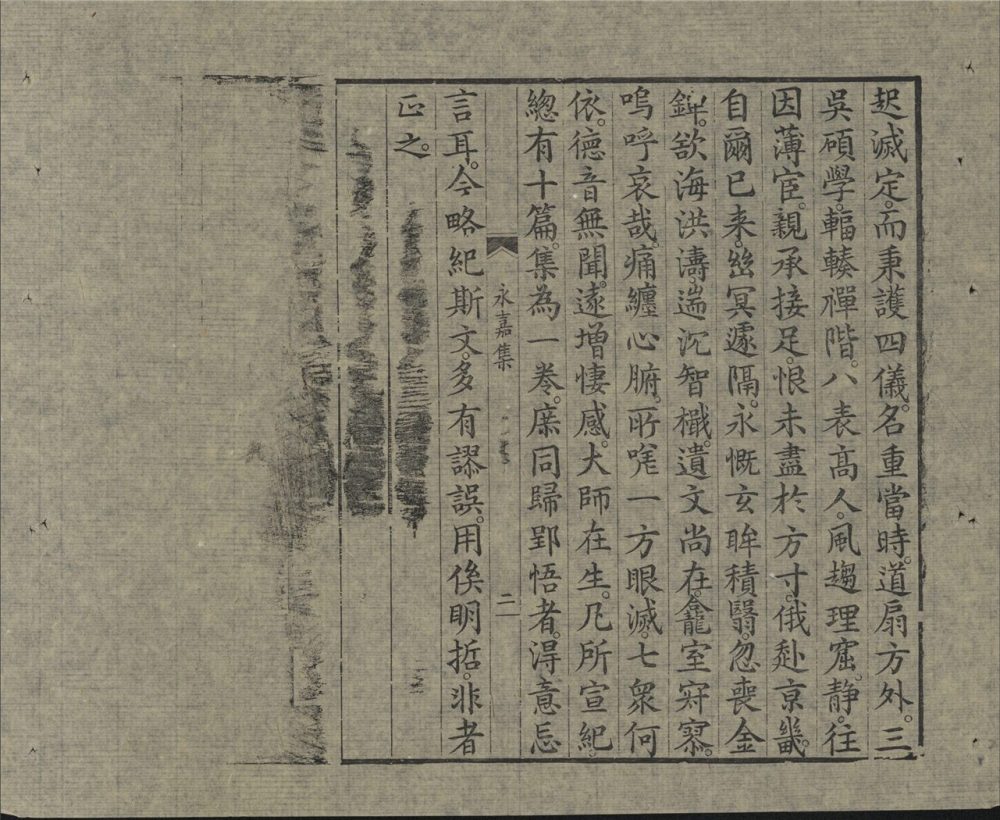 起滅定。而秉護四儀。名重當時。道扇方外。三
吳碩學。輻輳禪階。八表高人。風趨理窟。静。往
因薄宦。親承接足。恨未盡於方寸。俄赴京畿。
自爾已来。幽冥遽隔。永慨玄眸積翳。忽喪金
錍。欲海洪濤。遄沉智檝。遺文尚在。龕室寂寥。
嗚呼哀哉。痛纏心腑。所嗟一方眼滅。七衆何
依。德音無聞。遂增悽感。大師在生。凡所宣紀。
緫有十篇。集為一卷。庶同歸郢悟者。得意忘
永嘉集 二
言耳。今略紀斯文。多有謬誤。用俟明哲。非者
正之。